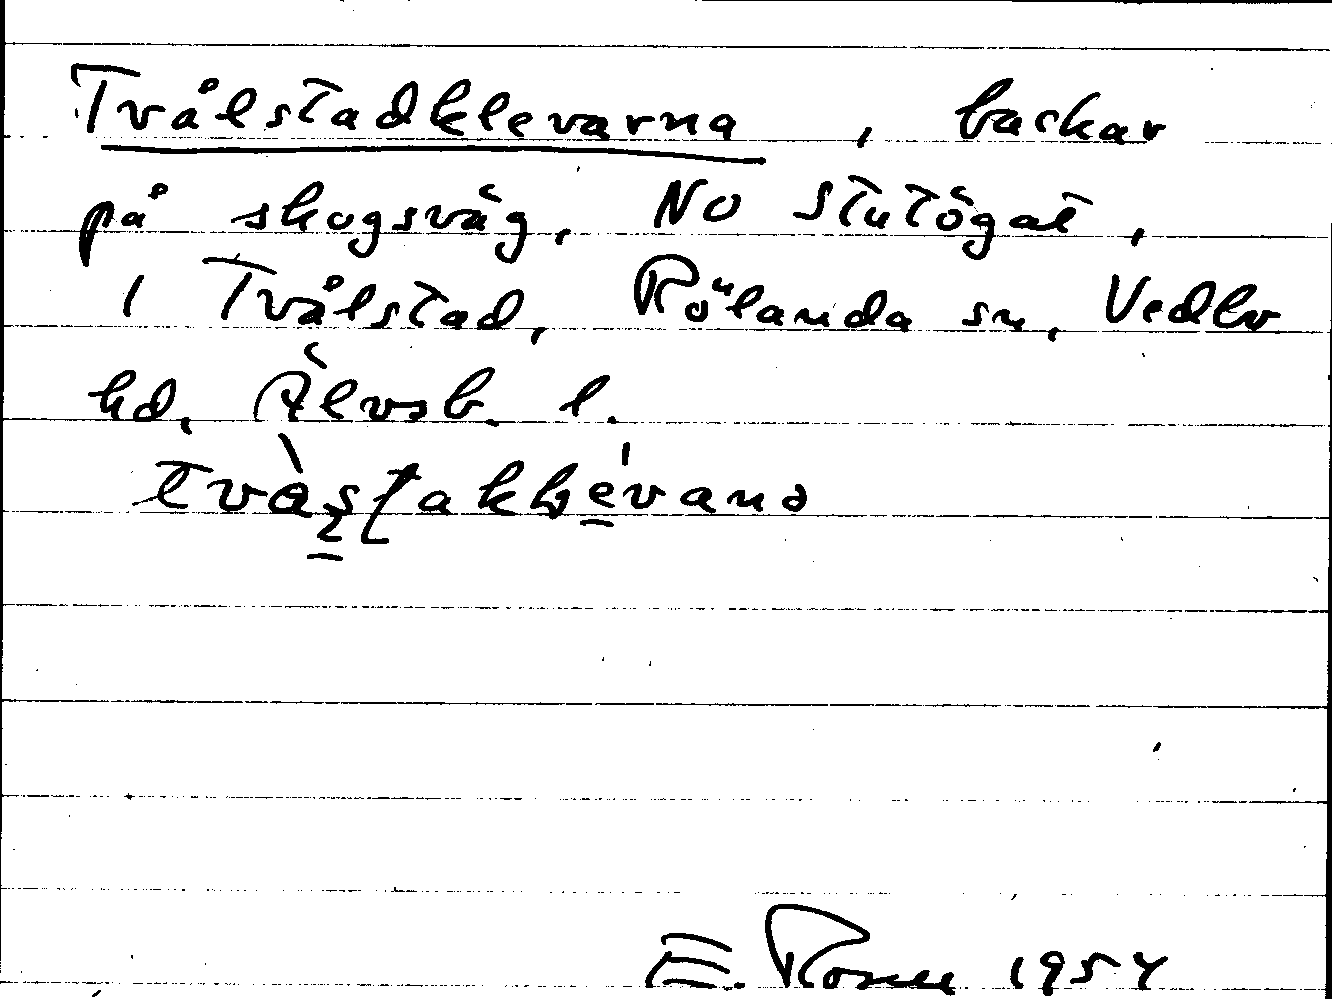 Tvålstadklevarna, backar
på skogsväg, NO Stutögat,
i Tvålstad, Rölanda sn, Vedbo
hd, Älvsb. l.
E. Rosell 1954